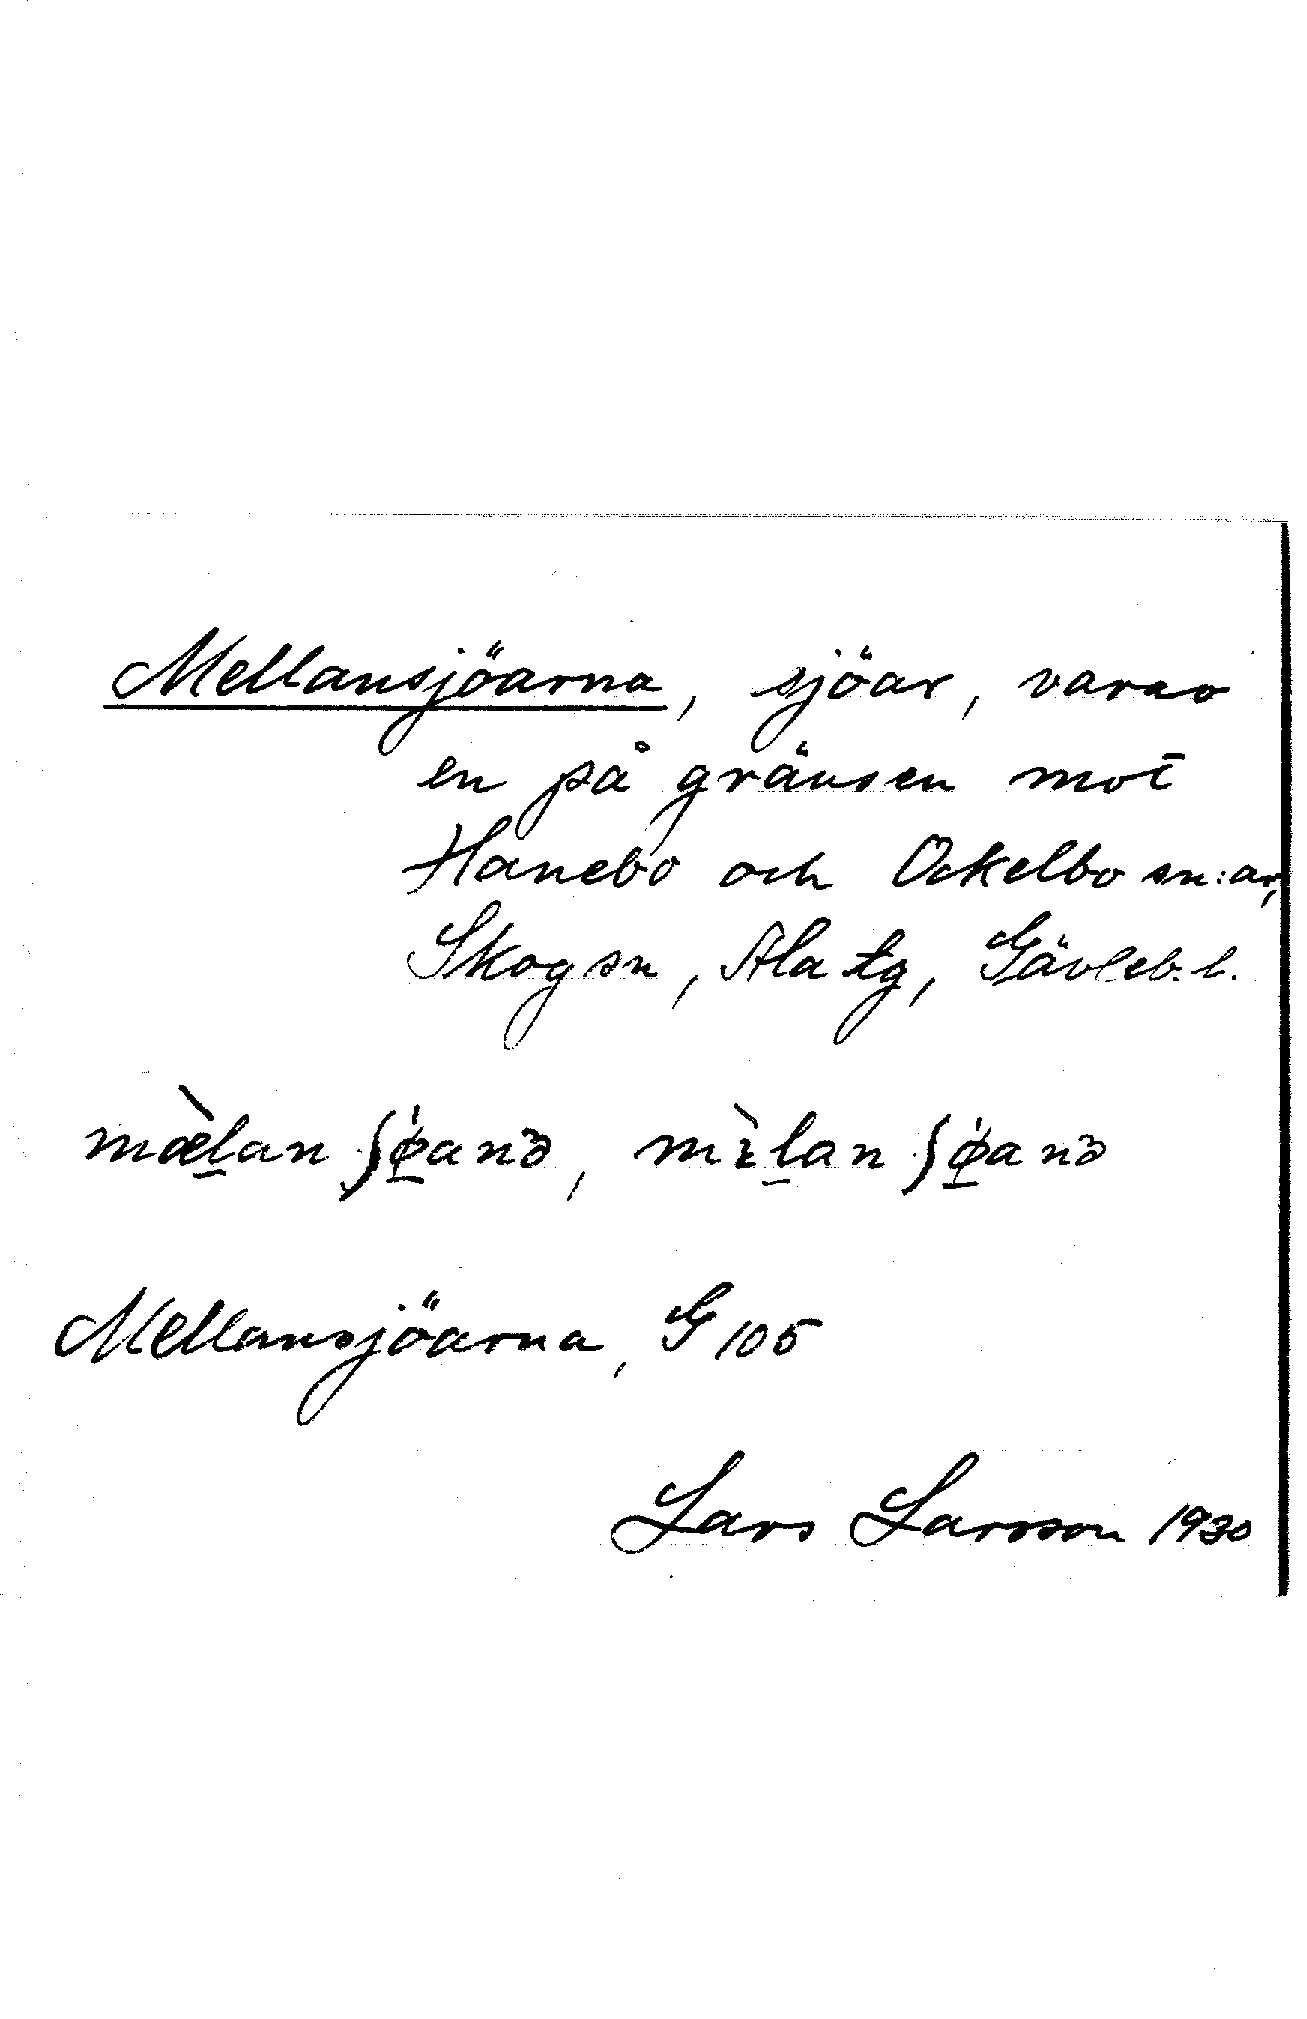 Mellansjöarna, sjöar, varav
en på gränsen mot
Hanebo och Ockelbo sn:ar,
Skog sn, Ala tg, Gävleb. l.
mæ̀l̲an ʃǿ̲anə, mɛ̀l̲an ʃǿ̲anə
Mellansjöarna, G 105
Lars Larsson 1930